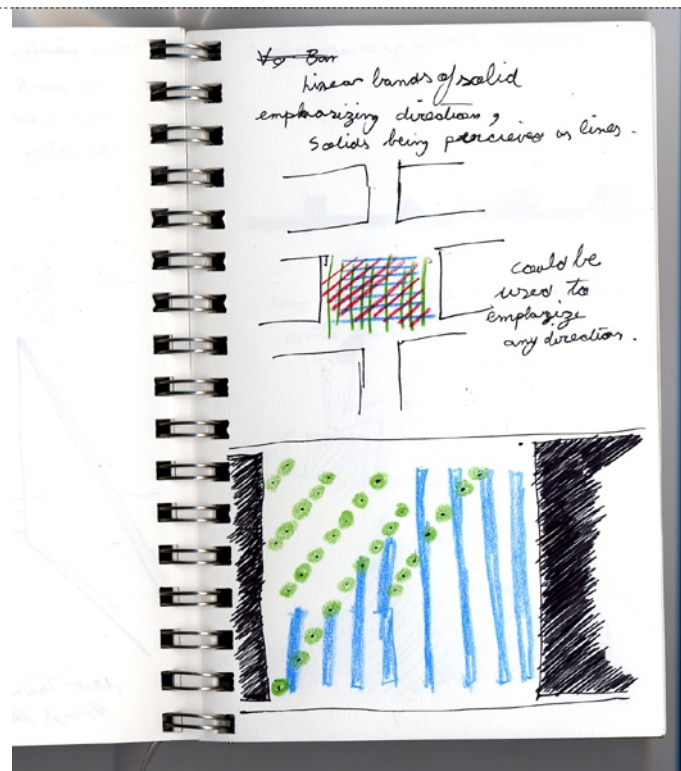 Linear bands of solid
emphasizing direction,
Solids being percieved as lines.
could be
used to
emphasize
any direction.